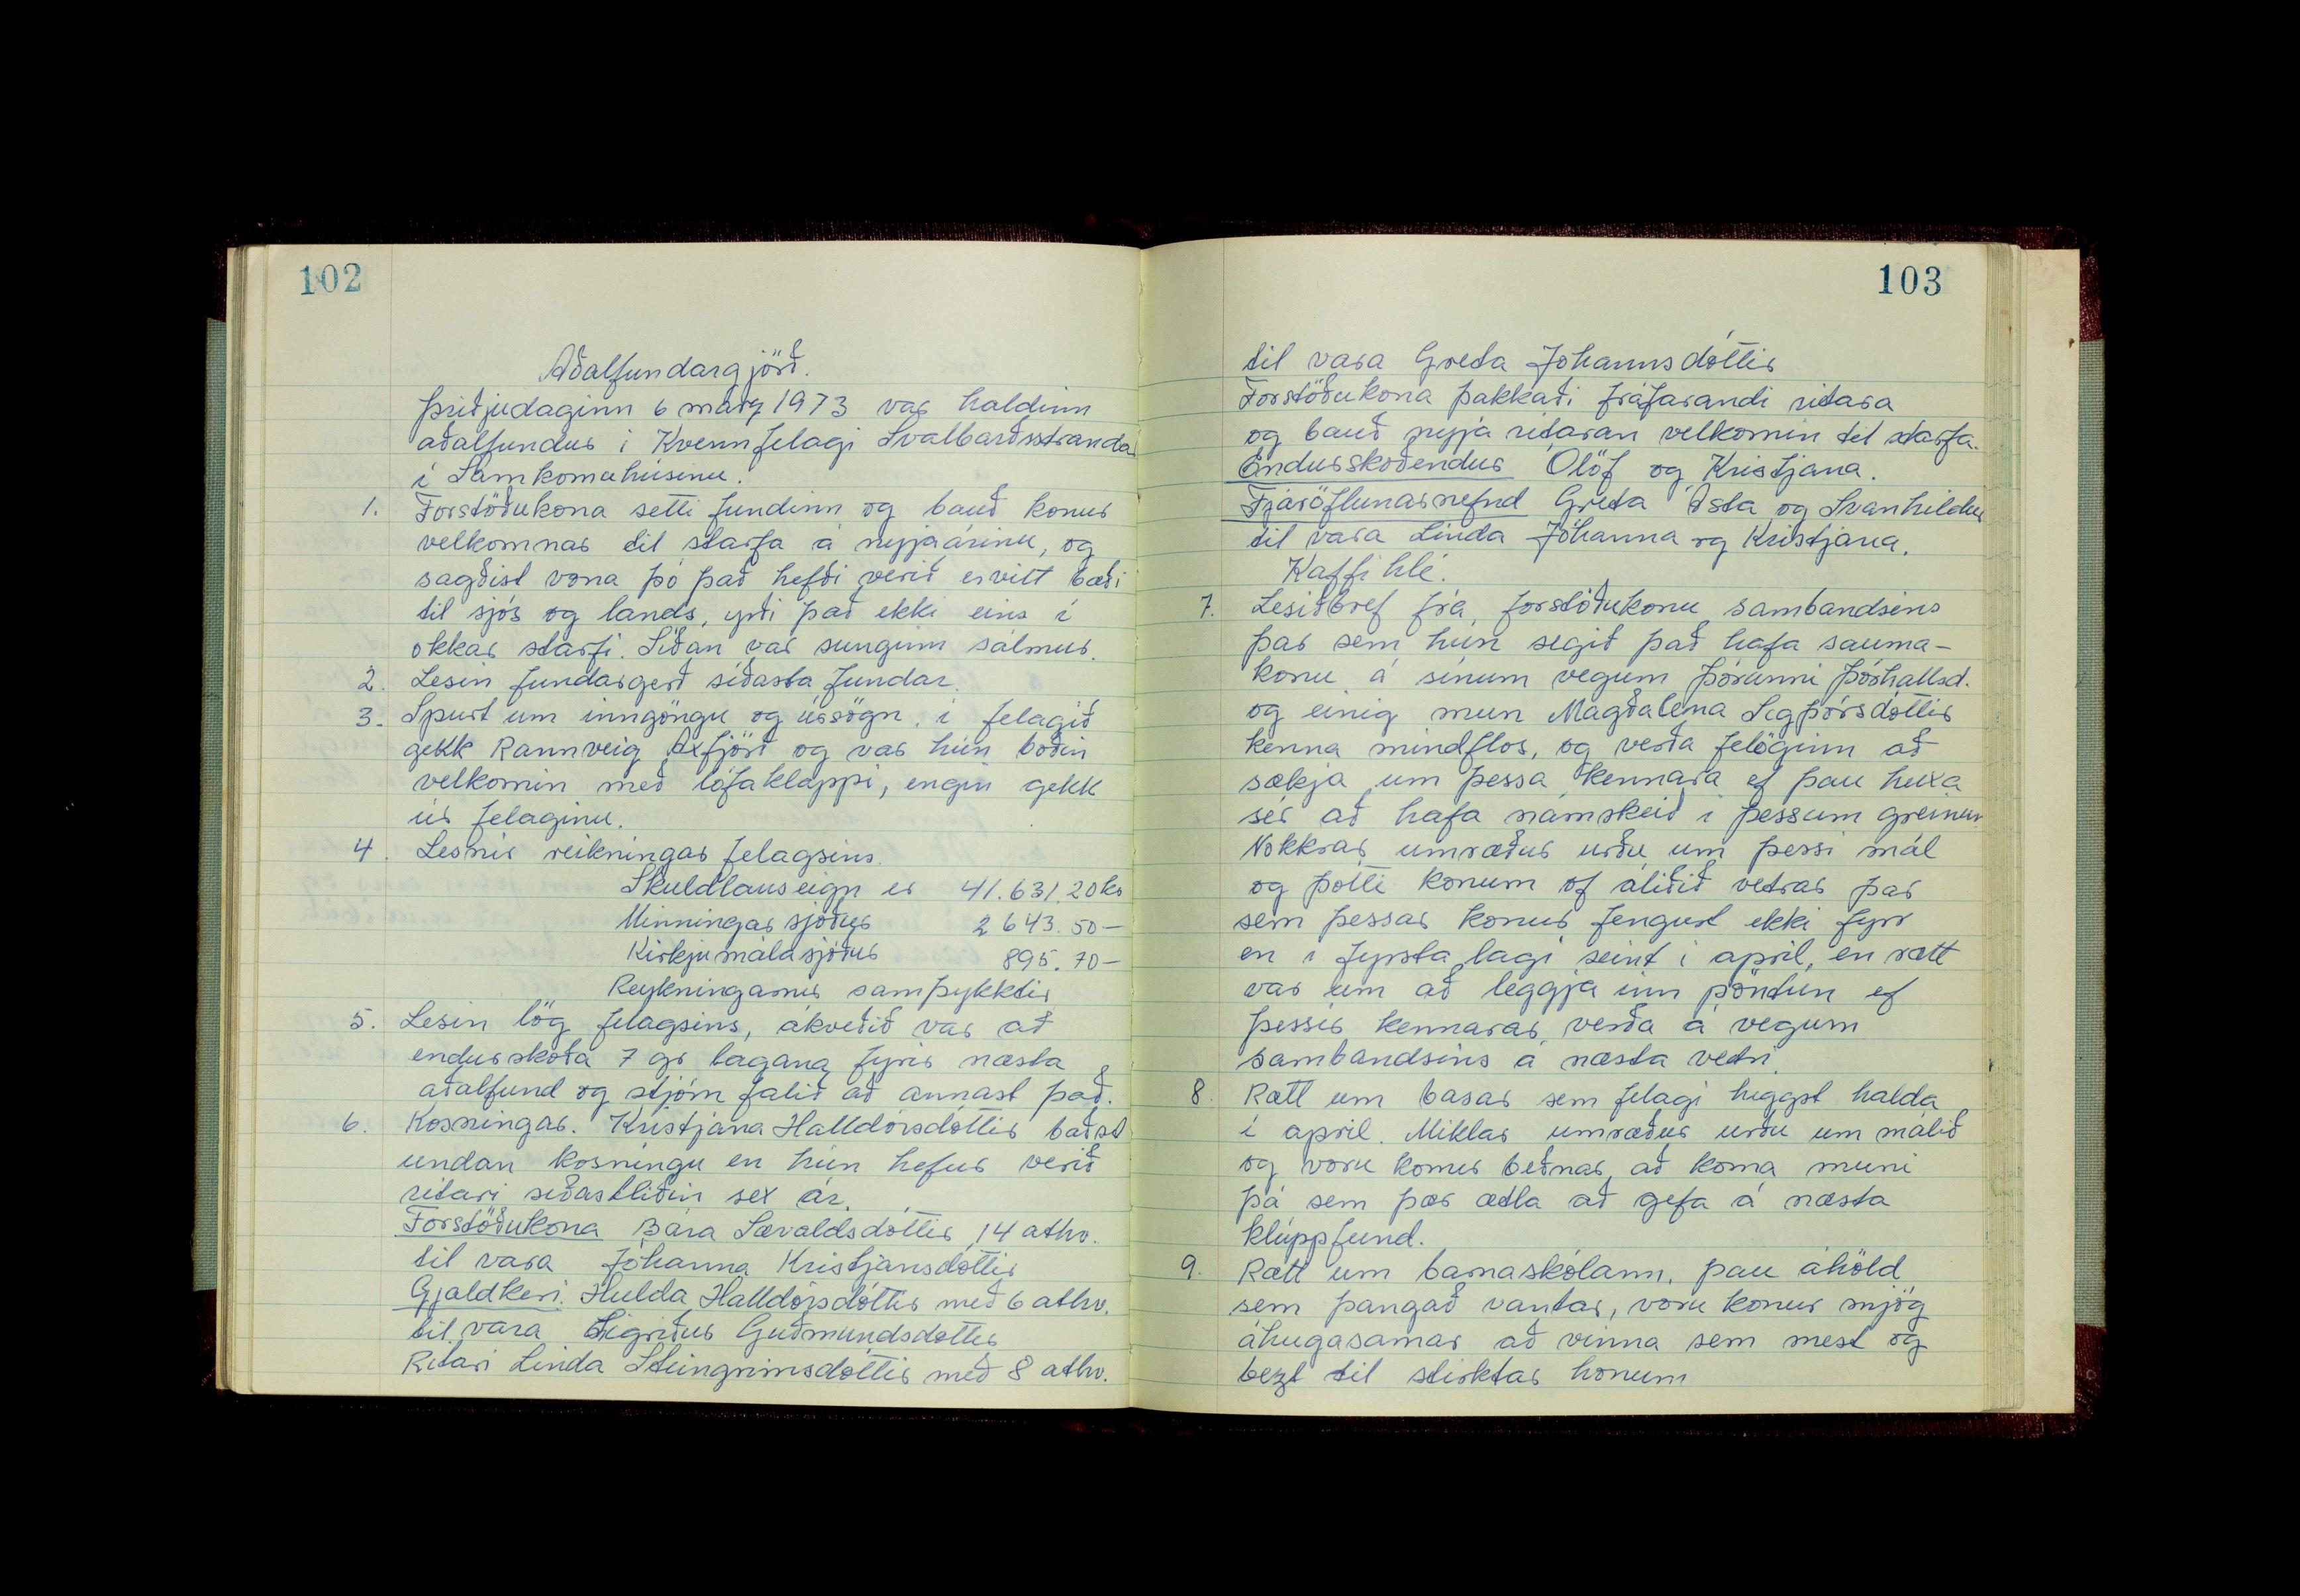 102
Aðalfundargjörð.
Þriðjudaginn 6 marz 1973 var haldinn
aðalfundur i Kvennfelagi Svalbarðsstrandar
í Samkomuhúsinu.
1. Forstöðukona setti fundinn og bauð konur
velkomnar til starfa á nyjaárinu, og
sagðist vona þó það hefði verið ervitt bæði
til sjós og lands, yrði það ekki eins í
okkar starfi. Síðan var sunginn sálmur.
2. Lesin fundargerð síðasta fundar.
3. Spurt um inngöngu og úrsögn, i felagið
gekk Rannveig Axfjörð og var hún boðin
velkomin með lófaklappi, engin gekk
úr felaginu.
4. Lesnir reikningar felagsins.
Skuldlaus eign er 41.631.20 kr
Minningar sjóður 2643.50 -
Kirkjumálasjóður 895.70 -
Reykningarnir samþykktir
5. Lesin lög felagsins, ákveðið var að
endurskoða 7 gr laganna fyrir næsta
aðalfund og stjórn falið að annast það.
6. Kosningar. Kristjana Halldórsdóttir baðst
undan kosningu en hún hefur verið
ritari siðastliðin sex ár.
Forstöðukona Bára Sævaldsdóttir, 14 atkv.
til vara Jóhanna Kristjánsdóttir
Gjaldkeri. Hulda Halldórsdóttir með 6 atkv.
til vara Sigríður Guðmundsdóttir
Ritari Linda Steingrimsdóttir með 8 atkv.
103
til vara Greta Jóhannsdóttir
Forstöðukona þakkaði fráfarandi ritara
og bauð nyja ritaran velkomin til starfa.
Endurskoðendur Ólöf og Kristjana.
Fjáröflunarnefnd Greta Ásta og Svanhildur
til vara Linda Jóhanna og Kristjana.
Kaffi hlé.
7. Lesiðbref frá forstöðukonu sambandsins
þar sem hún segið það hafa sauma-
konu á sínum vegum Þórunni Þórhallsd.
og einig mun Magðalena Sigþórsdóttir
kenna mindflos, og verða felöginn að
sækja um þessa kennara ef þau huxa
sér að hafa námskeið i þessum greinum
Nokkrar umræður urðu um þessi mál
og þótti konum of áliðið vetrar þar
sem þessar konur fengust ekki fyrr
en i fyrsta lagi seint i april, en rætt
var um að leggja inn pöntun ef
þessir kennarar verða á vegum
sambandsins á næsta vetri.
8. Rætt um basar sem felagi higgst halda
í april. Miklar umræður urðu um málið
og voru konur beðnar að koma muni
þá sem þær ætla að gefa á næsta
klúppfund.
9. Rætt um barnaskólann, þau áhöld
sem þangað vantar, voru konur mjög
áhugasamar að vinna sem mest og
bezt til stirktar honum